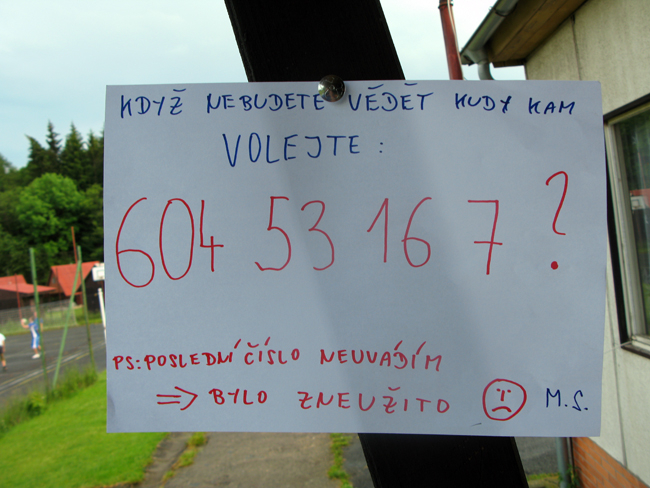 KDYŽ NEBUDETE VĚDĚT KUDY KAM
VOLEJTE:
604 53 16 7 ?
PS: POSLEDNÍ ČÍSLO NEUVÁDÍM
⇒ BYLO ZNEUŽITO ☹ M.S.